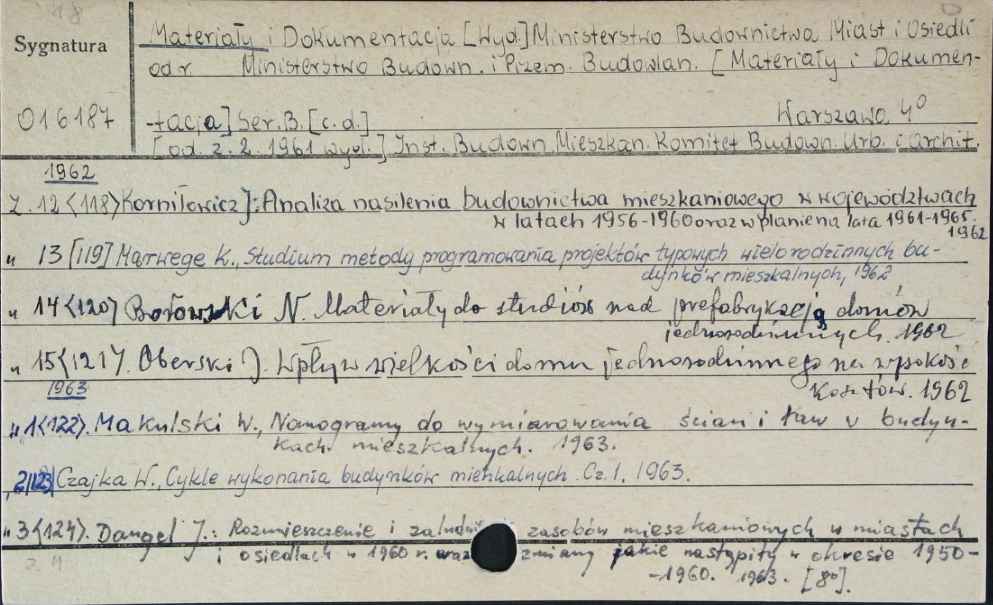 18
Sygnatura
016187
Materiały i Dokumentacja [Wyd.] Ministerstwo Budownictwa Miast i Osiedli
od r Ministerstwo Budown. i Przem. Budowlan. [Materiały i Dokumen-
-tacja] Ser. B. [c.d.] Warszawa 4°
[od z. 2. 1961 wyd.] Inst. Budown. Mieszkan. Komitet Budown. Urb. i archit.
1962
Z. 12 <118> Korniłowicz J: Analiza nasilenia budownictwa mieszkaniowego w województwach
w latach 1956-1960 oraz w planie na lata 1961-1965.
1962
" 13 [119] Marwege K., Studium metody programowania projektów typowych wielorodzinnych bu-
dynków mieszkalnych, 1962
" 14 <120> Borowski N. Materiały do studiów nad prefabrykacją domów
jednorodzinnych. 1962
" 15 <121>. Oberski J. Wpływ wielkości domu jednorodzinnego na wysokość
kosztów. 1962
1963
" 1 <122>. Makulski W., Nomogramy do wymiarowania ścian i ław w budyn-
kach mieszkalnych. 1963.
" 2 |123| Czajka W., Cykle wykonania budynków mieszkalnych. Cz. 1, 1963.
" 3 <124>. Dangel J.: Rozmieszczenie i zasobów mieszkaniowych w miastach
i osiedlach w 1960 r. oraz zmiany jakie nastąpiły w okresie 1950-
-1960. 1963. [8°].